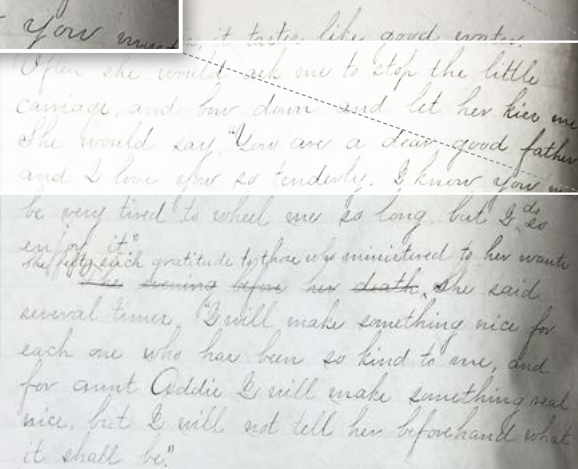 You
, it tastes like good water.
Often she would ask me to stop the little
carriage, and bow down and let her kiss me
She would say, "You are a dear good father
and I love you so tenderly. I know you
be very tired to wheel me so long, but I do so
enjoy it."
She felt such gratitude to those who ministered to her wants
The evening before her death, She said
several times, "I will make something nice for
each one who has been so kind to me, and
for aunt Addie I will make something real
nice, but I will not tell her beforehand what
it shall be."